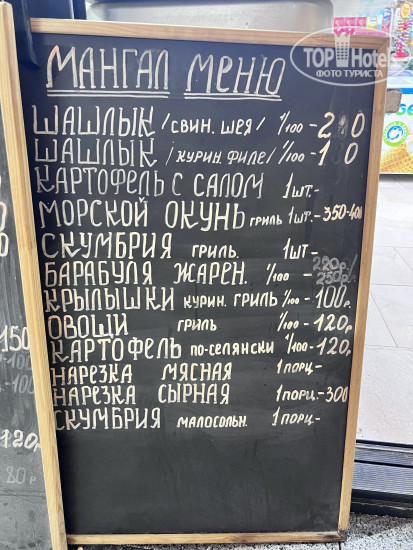 TOP Hotels
ФОТО ТУРИСТА
МАНГАЛ МЕНЮ
ШАШЛЫК /СВИН. ШЕЯ/ %100-
ШАШЛЫК /КУРИН. ФИЛЕ/ %100-
КАРТОФЕЛЬ С САЛОМ 1ШТ-
МОРСКОЙ ОКУНЬ ГРИЛЬ 1ШТ.-350-400
СКУМБРИЯ ГРИЛЬ. 1ШТ-
БАРАБУЛЯ ЖАРЕН. %100- 220р/250р
КРЫЛЫШКИ КУРИН. ГРИЛЬ %100-100р.
ОВОЩИ ГРИЛЬ %100-120р.
КАРТОФЕЛЬ ПО-СЕЛЯНСКИ %100-120р.
НАРЕЗКА МЯСНАЯ 1ПОРЦ-
НАРЕЗКА СЫРНАЯ 1ПОРЦ-300
СКУМБРИЯ МАЛОСОЛЬН. 1ПОРЦ-
150
120р
80р